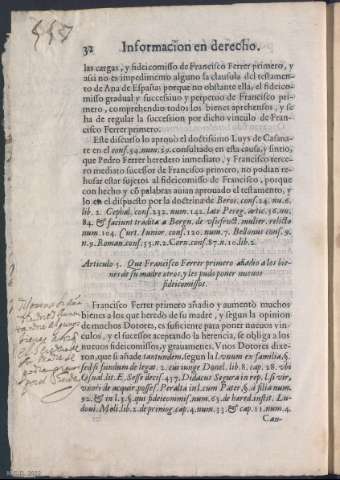 32 Informacion en derecho.
las cargas, y fideicomisso de Francisco Ferrer primero, y
assi no es impedimento alguno la clausula del testamen-
to de Ana de Espafias porque no obstante ella, el fideico-
misso gradual y successiuo y perpetuo de Francisco pri-
mero, comprehendio todos los bienes aprehensos, y se
ha de regular la succession por dicho vinculo de Fran-
cisco Ferrer primero.
Este discurso lo aprouò el doctissimo Luys de Casana-
te en el cons. 54. num. 59. consultado en esta causa, y sintio,
que Pedro Ferrer heredero inmediato, y Francisco terce-
ro mediato sucessor de Francisco primero, no podian re-
husar estar sujetos al fideicomisso de Francisco, porque
con hecho y cō palabras auian aprouado el testamento, y
lo en el dispuesto por la doctrina de Beroi. cons. 24. nu. 6.
lib. 2. Cephal. cons. 232. num. 142. late Pereg. artic. 36. nu.
84. & faciunt tradita a Bargn. de vsufruct. mulier. relicto
num. 104. Curt. Iunior. cons. 120. num. 7. Bellonus cons. 9.
n. 9. Roman. cons. 53. n. 2. Corn. cons. 87. n. 10. lib. 2.
Articulo 5. Que Francisco Ferrer primero añadio a los bie-
nes de su madre otros, y les pudo poner nueuos
fideicomissos.
Francisco Ferrer primero añadio y aumentò muchos
bienes a los que heredò de su madre, y segun la opinion
de muchos Dotores, es suficiente para poner nueuos vin-
culos, y el sucessor aceptando la herencia, se obliga a los
nueuos fideicomissos, y grauamenes. Vnos Dotores dixe-
ron, que si añade tantundem, segun la l. vnum ex familia, §.
sed si fundum de legat. 2. cui iunge Donel. lib. 8. cap. 28. vbi
Osual. lit. E. Sesse decis. 437. Didacus Segura in rep. l. si vir,
vxori de acquir. posses. Peralta in l. cum Pater, §. à filia num.
92. & in l. 3. §. qui fideicomiss. num. 63. de hered. instit. Lu-
doui. Moli. lib. 2. de primog. cap. 4. num. 33. & cap. 11. num. 4.
Can-